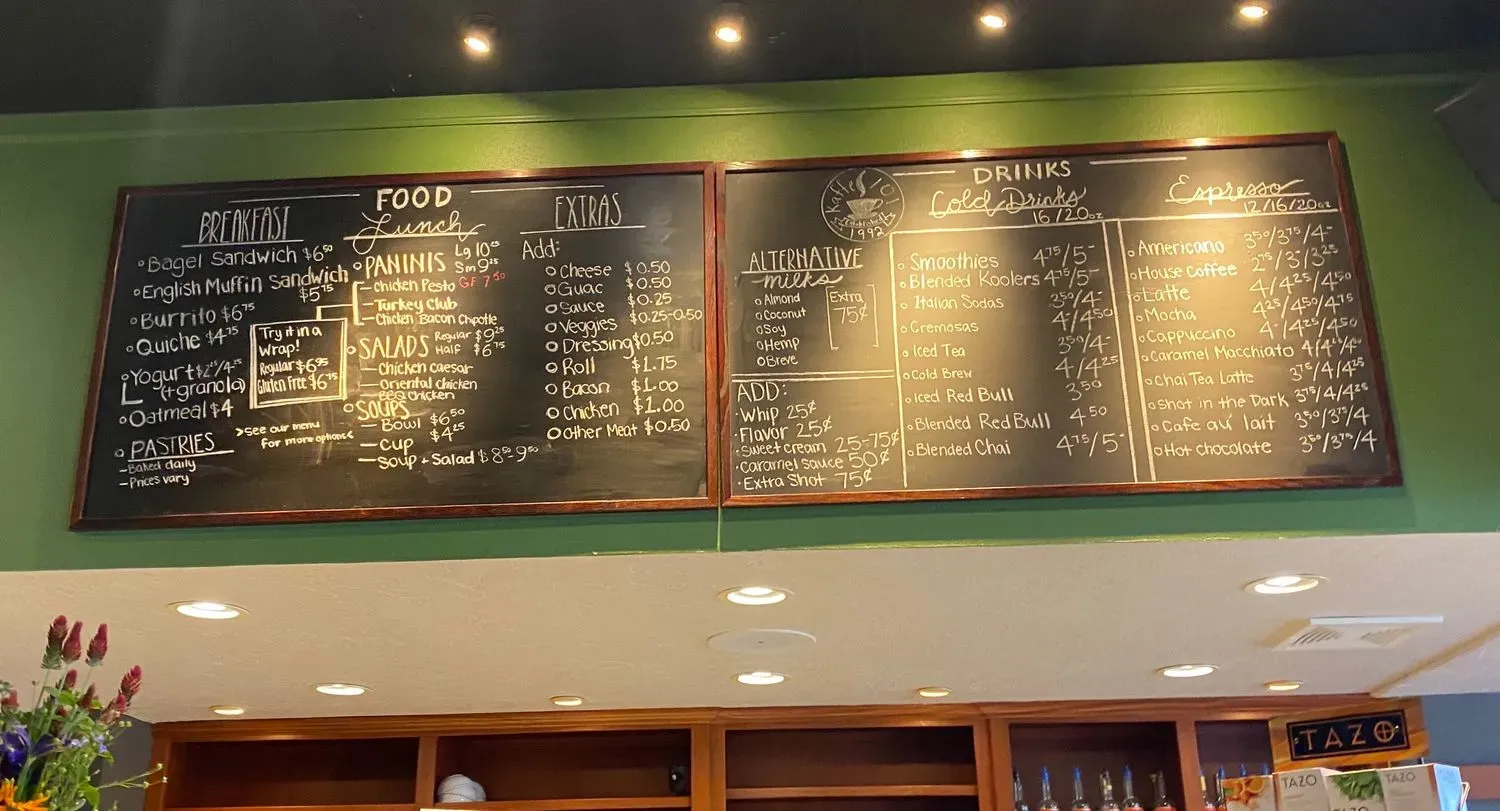 FOOD
BREAKFAST
Bagel Sandwich $6⁵⁰
English Muffin Sandwich
$5⁷⁵
Burrito $6⁷⁵
Quiche $4⁷⁵
Yogurt
(+granola)
Oatmeal $4
PASTRIES
-Baked daily
-Prices vary
Try it in a
Wrap!
Regular $6⁹⁵
Gluten Free $6⁷⁵
>see our menu
for more options<
Lunch
PANINIS Lg 10²⁵
Sm 9²⁵
- chicken Pesto GF 7⁵⁰
- Turkey Club
- Chicken Bacon Chipotle
SALADS Regular $9²⁵
Half $6⁷⁵
- Chicken caesar
- Oriental chicken
- BBQ Chicken
SOUPS
- Bowl $6⁵⁰
- Cup $4²⁵
- Soup + Salad $8⁵⁰-9⁵⁰
EXTRAS
Add:
Cheese $0.50
Guac $0.50
Sauce $0.25
Veggies $0.25-0.50
Dressing $0.50
Roll $1.75
Bacon $1.00
Chicken $1.00
Other Meat $0.50
DRINKS
Kaffe 101
Established
1992
ALTERNATIVE
milks
Almond
Coconut
Soy
Hemp
Breve
Extra
75¢
ADD:
Whip 25¢
Flavor 25¢
Sweet cream 25-75¢
Caramel sauce 50¢
Extra Shot 75¢
Cold Drinks
16/20oz
Smoothies 4⁷⁵/5-
Blended Koolers 4⁷⁵/5-
Italian Sodas 3⁵⁰/4-
Cremosas 4-/4⁵⁰
Iced Tea 3⁵⁰/4-
Cold Brew 4/4²⁵
Iced Red Bull 3⁵⁰
Blended Red Bull 4⁵⁰
Blended Chai 4⁷⁵/5-
Espresso
12/16/20oz
Americano 3⁵⁰/3⁷⁵/4-
House Coffee 2⁷⁵/3/3²⁵
Latte 4/4²⁵/4⁵⁰
Mocha 4²⁵/4⁵⁰/4⁷⁵
Cappuccino 4-/4²⁵/4⁵⁰
Caramel Macchiato
Chai Tea Latte 3⁷⁵/4/4²⁵
Shot in the Dark 3⁷⁵/4/4²⁵
Cafe au lait 3⁵⁰/3⁷⁵/4
Hot chocolate 3⁵⁰/3⁷⁵/4
TAZO
TAZO
TAZO
TAZO